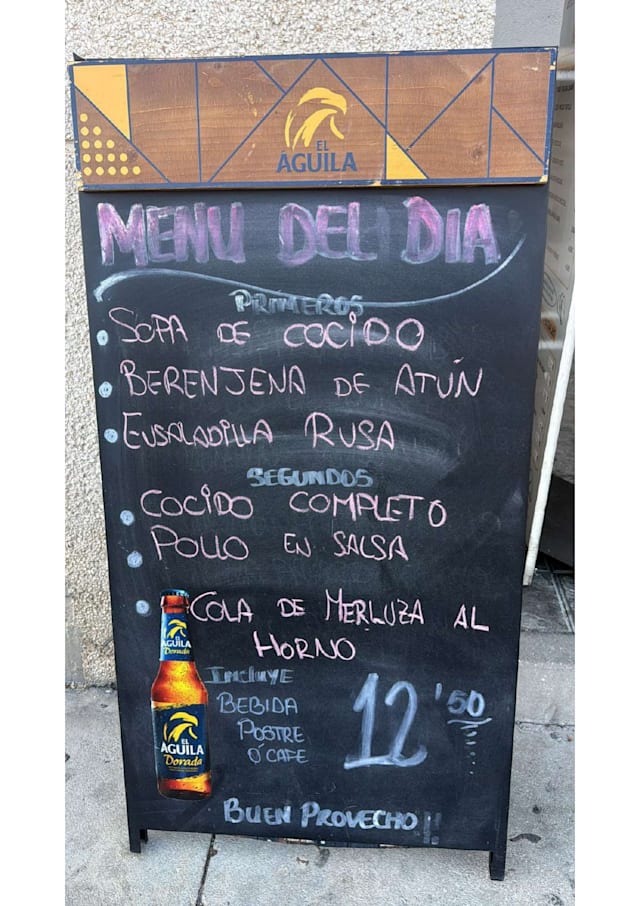 EL
ÁGUILA
MENU DEL DIA
PRIMEROS
SOPA DE COCIDO
BERENJENA DE ATÚN
ENSALADILLA RUSA
SEGUNDOS
COCIDO COMPLETO
POLLO EN SALSA
COLA DE MERLUZA AL
HORNO
INCLUYE
BEBIDA
POSTRE
Ó CAFE
12'50
EL
ÁGUILA
Dorada
EL
ÁGUILA
Dorada
BUEN PROVECHO!!